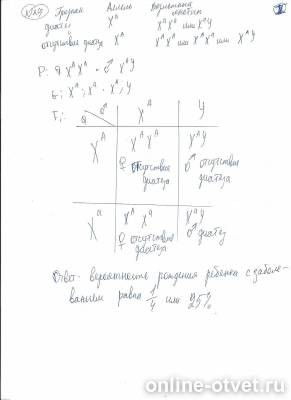 Признак Аллель Возможные генотипы
диатез Xᵃ XᵃXᵃ или XᵃY
отсутствие диатеза Xᴬ XᴬXᴬ или XᴬXᵃ или XᴬY
P: ♀ XᴬXᵃ × ♂ XᴬY
G: Xᴬ; Xᵃ Xᴬ; Y
F₁:
♀ ♂ Xᴬ Y
Xᴬ XᴬXᴬ XᴬY
♀ отсутствие диатеза ♂ отсутствие диатеза
Xᵃ XᴬXᵃ XᵃY
♀ отсутствие диатеза ♂ диатез
Ответ: вероятность рождения ребенка с заболе-
ванием равна 1/4 или 25%
online-otvet.ru